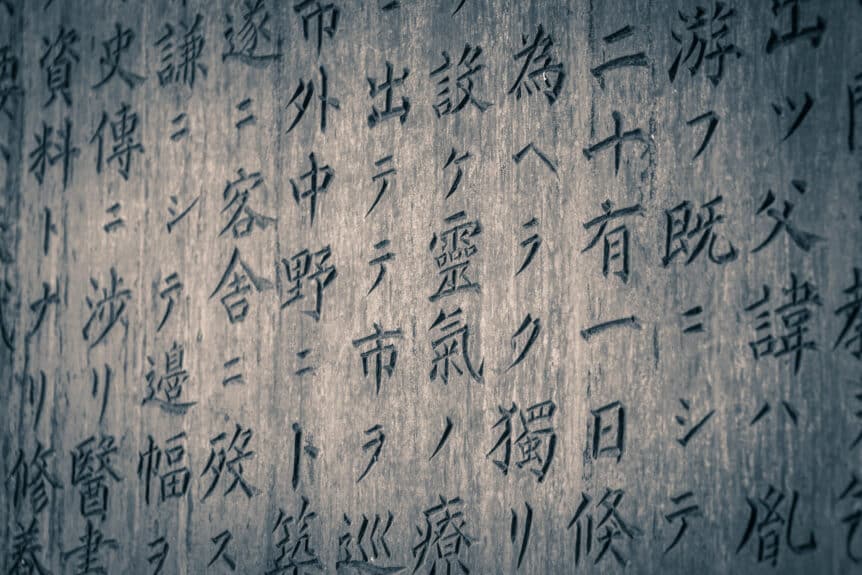 出ツ父諱ハ胤
游フ既ニシテ
二十有一日倏
為ヘラク獨リ
設ケ靈氣ノ療
出テテ市ヲ巡
市外中野ニト築
遂ニ客舎ニ歿ス
謙ニシテ邊幅ヲ
史傳ニ渉リ醫書
資料トナリ修養